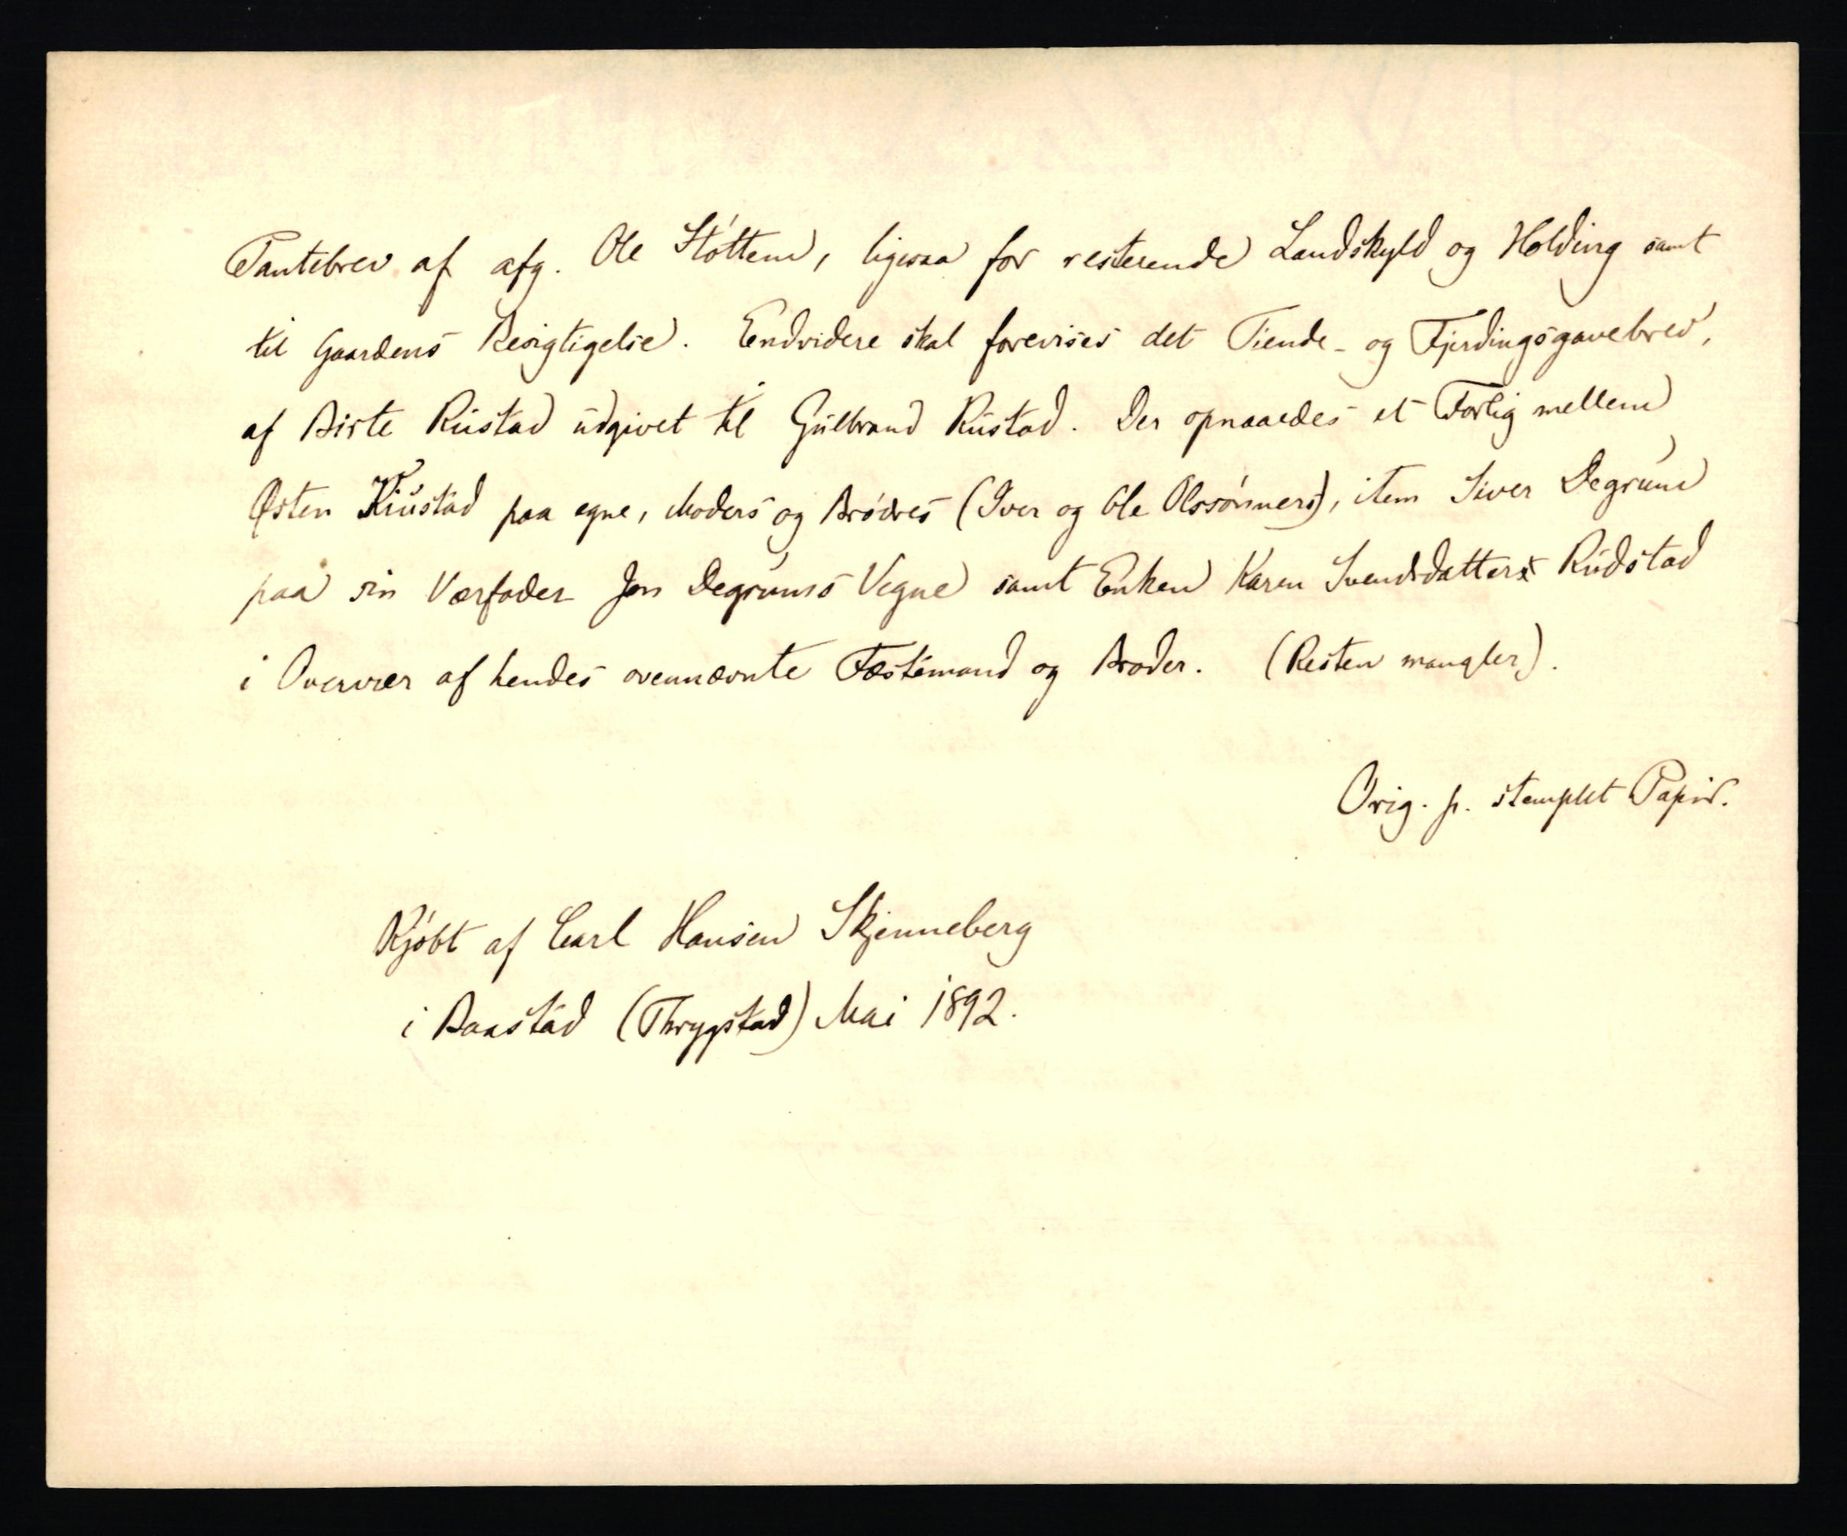 Pantebrev af afg. Ole Støttem, ligesaa for resterende Landskyld og Holding samt
til Gaardens Besigtigelse. Endvidere skal forevises det Tiende- og Fjerdingsgavebrev,
af Birte Rustad udgivet til Gulbrand Rustad. Der opnaaedes et Forlig mellem
Østen Rustad paa egne, Moders og Brødres (Iver og Ole Olssønners), item Siver Degrum
paa sin Værfader Jon Degrums Vegne samt Enken Karen Svendsdatter Rudstad
i Overvær af hendes ovennævnte Fæstemand og Broder. (Resten mangler).
Orig. p. stemplet Papir.
Kjøbt af Carl Hansen Skjenneberg
i Baastad (Thrygstad) Mai 1892.